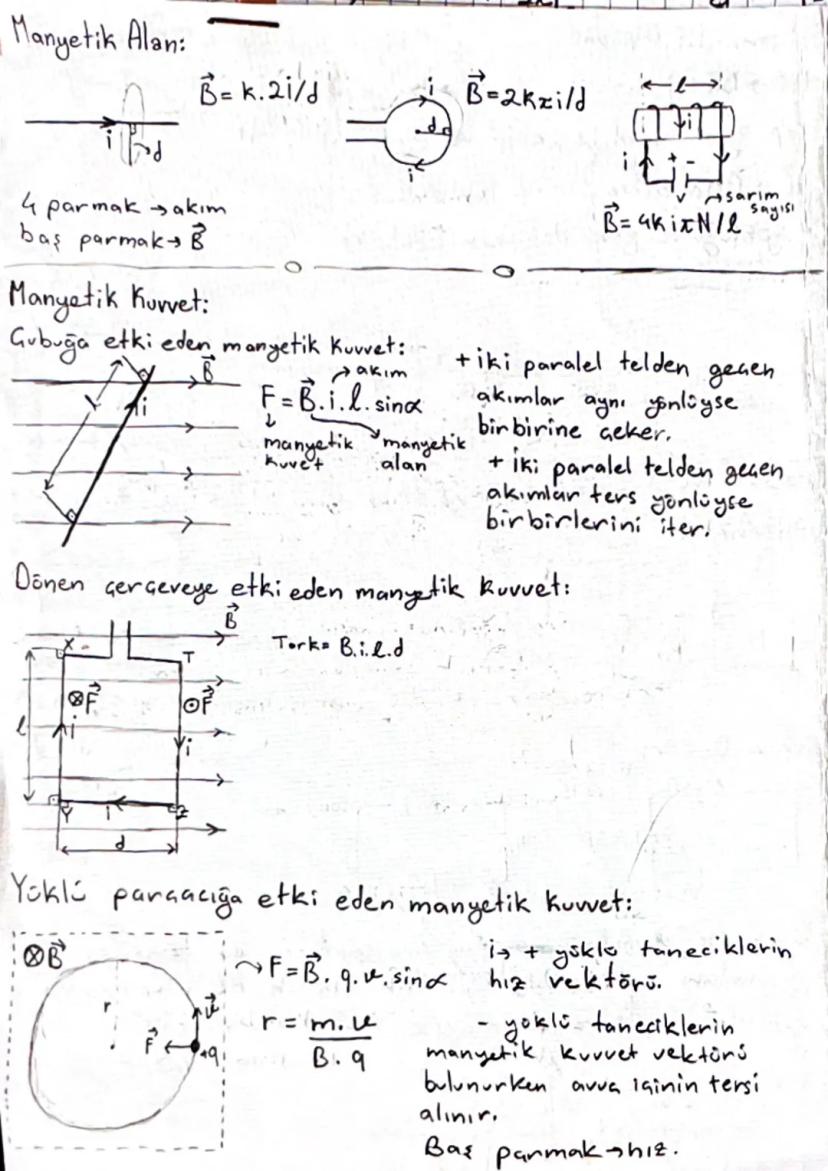 Manyetik Alan:
B = k.2i/d
i
d
B = 2kπi/d
i
d
i
l
i
i
+ -
V
sarım sayısı
B = 4kiπN/l
4 parmak → akım
baş parmak → B
Manyetik Kuvvet:
Çubuğa etki eden manyetik kuvvet:
B
i
l
→ akım
F = B.i.l.sinα
manyetik kuvvet
manyetik alan
+ iki paralel telden geçen
akımlar aynı yönlüyse
birbirine çeker.
+ iki paralel telden geçen
akımlar ters yönlüyse
birbirlerini iter.
Dönen çerçeveye etki eden manyetik kuvvet:
B
X
T
⊗F
⊙F
i
i
l
Y
i
Z
d
Tork = B.i.l.d
Yüklü parçacığa etki eden manyetik kuvvet:
⊗B
r
v
F
+q
→ F = B.q.v.sinα
r = m.v / B.q
i → + yüklü taneciklerin
hız vektörü.
- yüklü taneciklerin
manyetik kuvvet vektörü
bulunurken avuç içinin tersi
alınır.
Baş parmak → hız.